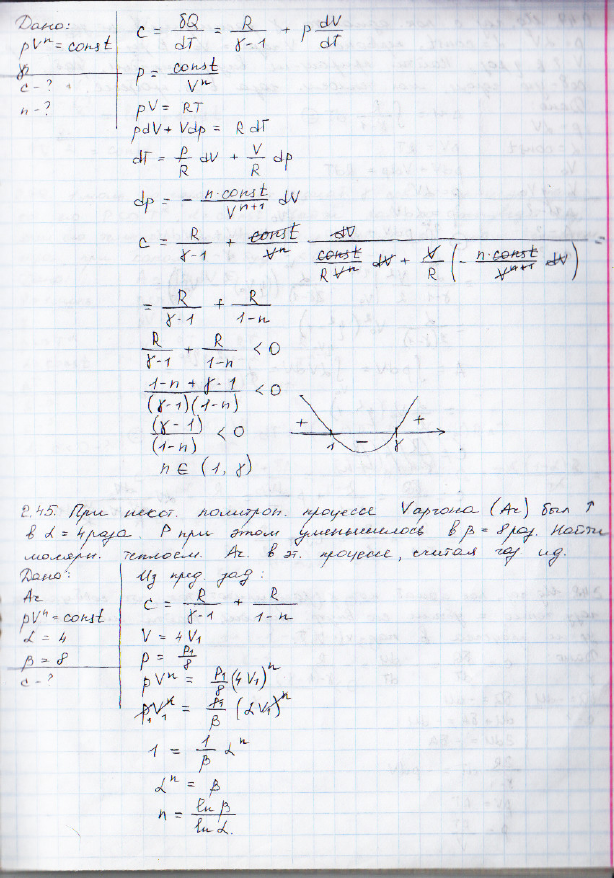 Дано:
pVⁿ = const
γ
c - ?
n - ?
c = δQ/dT = R/(γ-1) + p dV/dT
p = const/Vⁿ
pV = RT
pdV + Vdp = R dT
dT = p/R dV + V/R dp
dp = - n·const/Vⁿ⁺¹ dV
c = R/(γ-1) + const/Vⁿ dV/(const/(R Vⁿ) dV + V/R (- n·const/Vⁿ⁺¹ dV))
= R/(γ-1) + R/(1-n)
R/(γ-1) + R/(1-n) < 0
(1-n + γ-1)/((γ-1)(1-n)) < 0
(γ-1)/(1-n) < 0
n ∈ (1, γ)
+ 1 - γ +
2.45. При некот. политроп. процессе V аргона (Ar) был ↑
в α = 4 раза. P при этом уменьшилось в β = 8 раз. Найти
молярн. теплоем. Ar в эт. процессе, считая газ ид.
Дано:
Ar
pVⁿ = const
α = 4
β = 8
c - ?
Из пред. зад:
c = R/(γ-1) + R/(1-n)
V = 4V₁
p = p₁/8
pVⁿ = p₁/8 (4V₁)ⁿ
p₁V₁ⁿ = p₁/β (αV₁)ⁿ
1 = 1/β αⁿ
αⁿ = β
n = ln β/ln α.